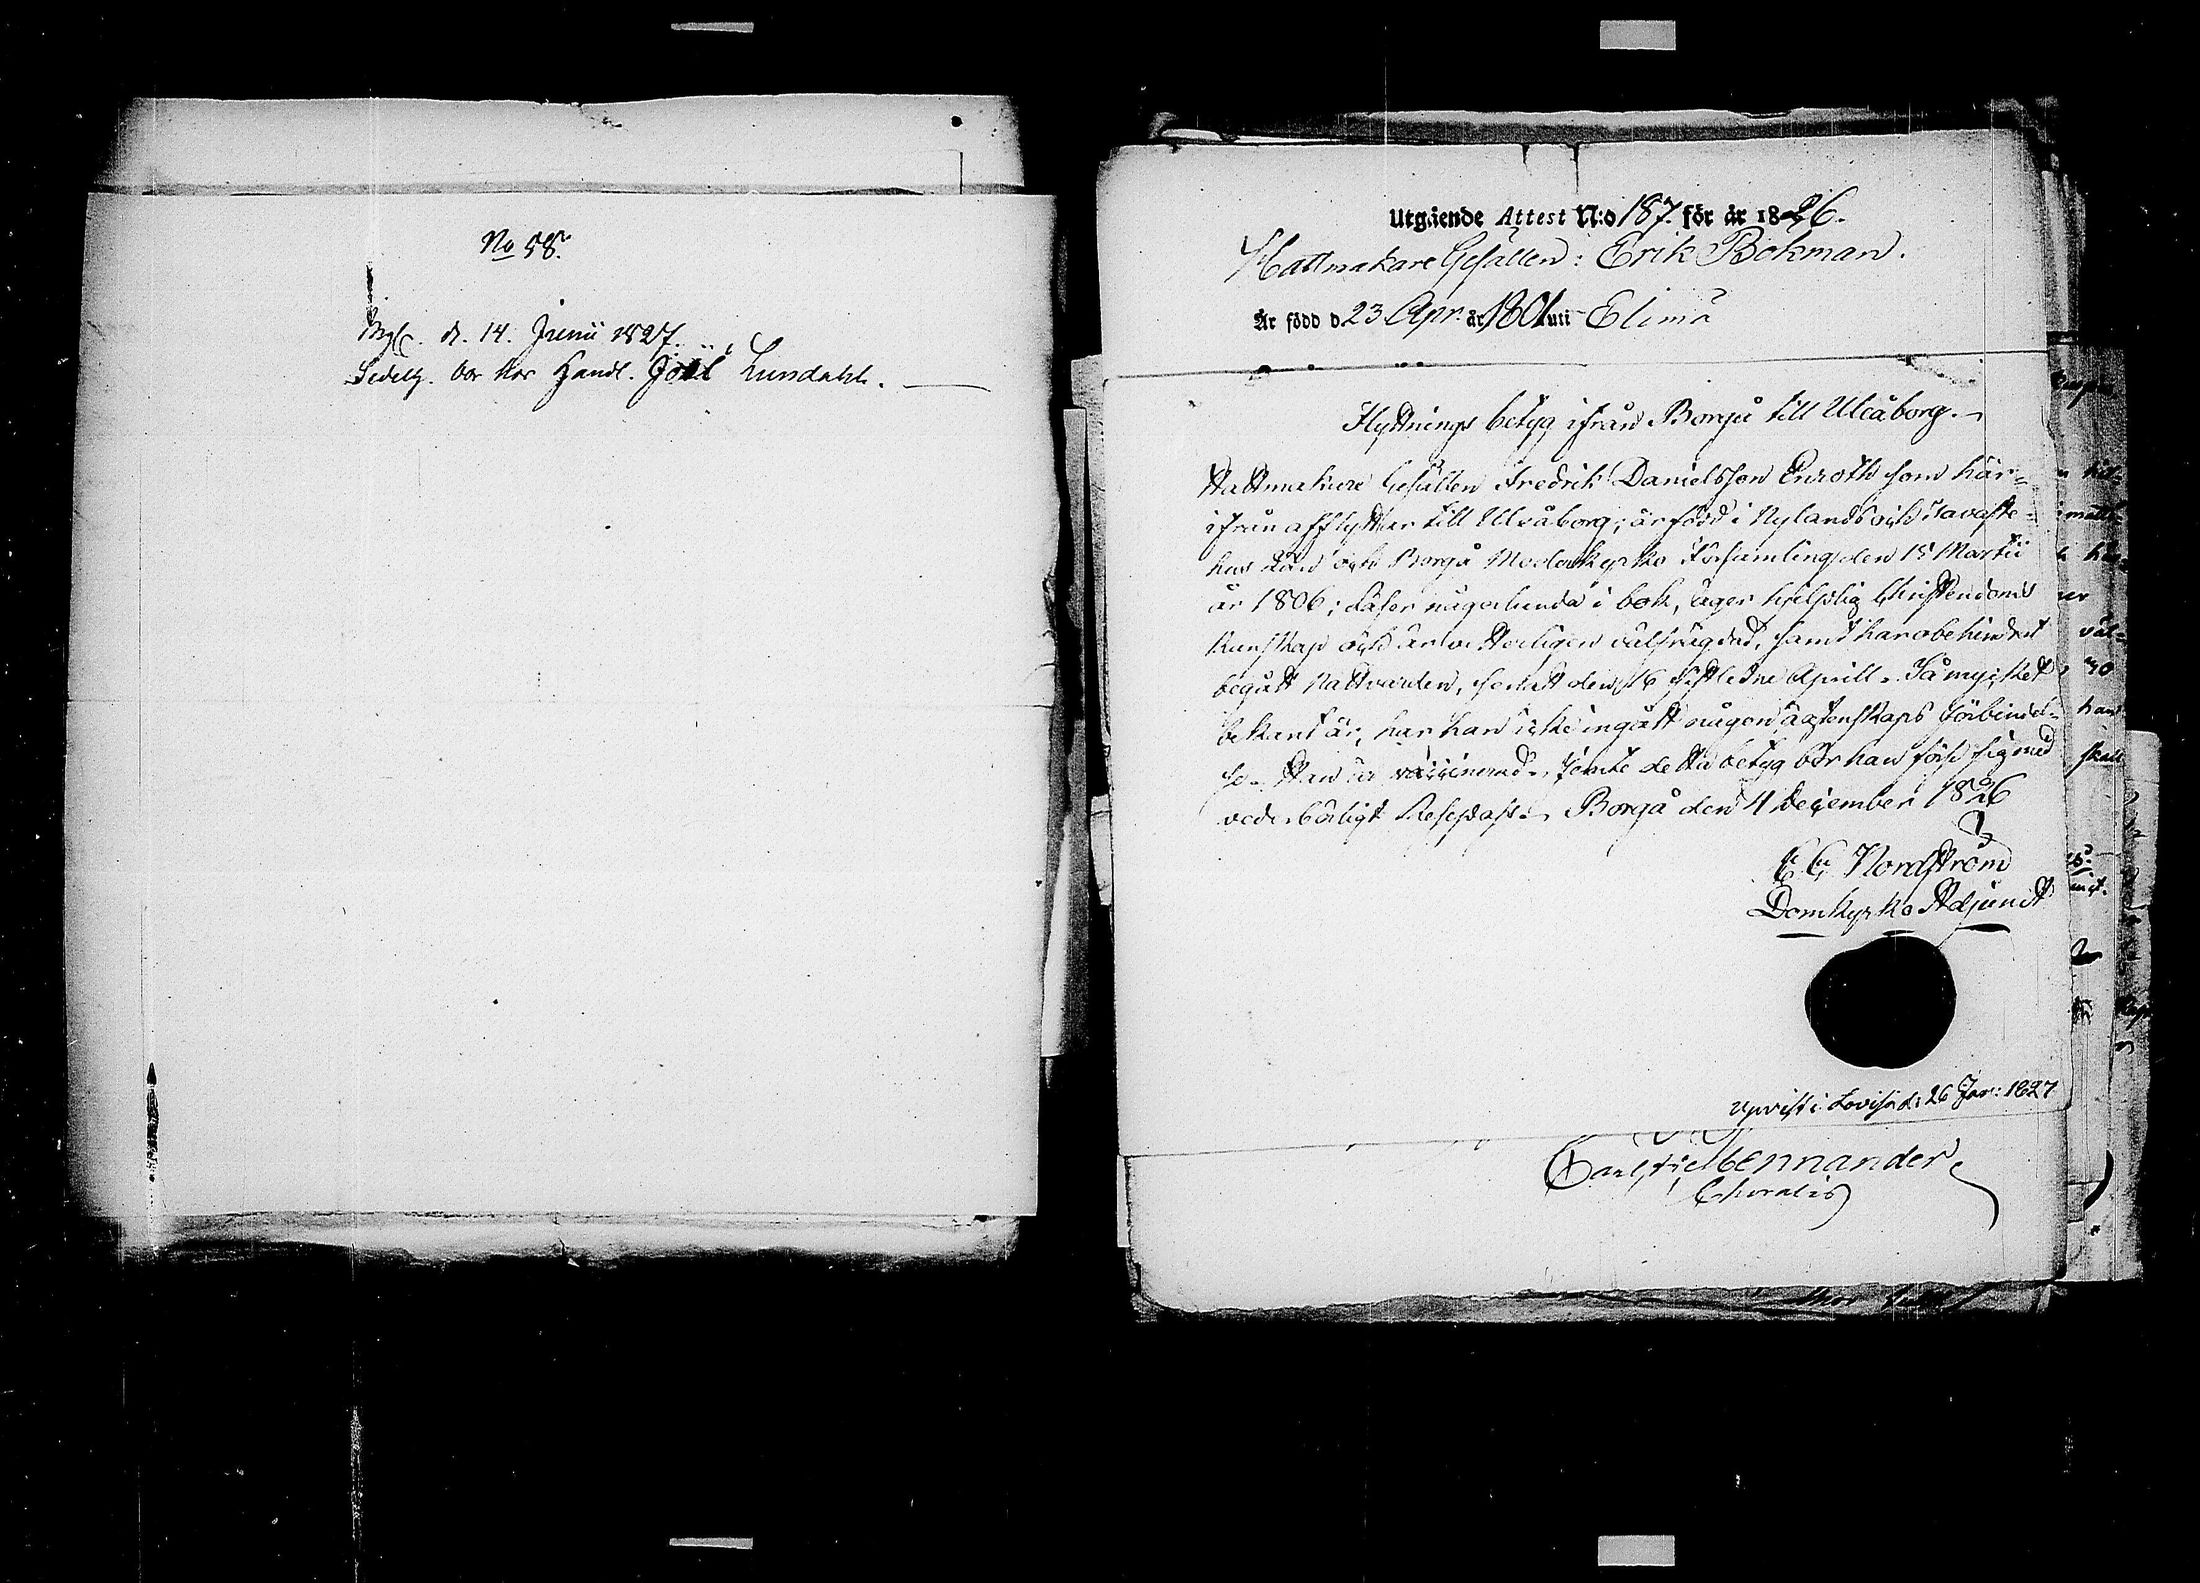 No 58.
d. 14. Junii 1827.
bor hos Handl. Joël Lundahl.
Utgående Attest N:o 187. för år 1826.
Hattmakare Gesällen: Erik Bokman.
Är född d. 23 Apr. år 1801 uti Elimä
Flyttnings betyg ifrån Borgå till Uleåborg.
Hattmakare Gesällen Fredrik Danielsson Enroth som här-
ifrån afflyttar till Uleåborg; är född i Nylands och Tavaste-
hus Län och Borgå Moderkyrko Församling den 15 Martii
år 1806; läser någorlunda i bok, äger hjelplig Christendoms
kunskap och är vitterligen välfrägdad, samt har obehindrat
begått Nattvarden, sednast den 16 sistledne Aprill. Så mycket
bekant är, har han icke ingått någon ägtenskaps förbindel-
se. Han är vaccinerad. Jemte detta betyg bör han förse sig med
vederbörligt Resepass. Borgå den 4 December 1826
C. G. Nordström
Domkyrko Adjunct
Upvist i Lovisa d: 26 Jan: 1827
Mennander